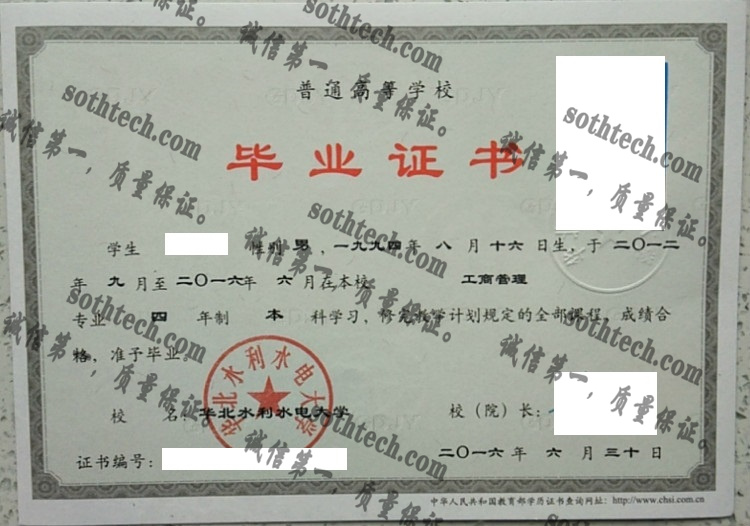 普通高等学校
毕业证书
学生 性别 男 ，一九九四年 八 月 十六 日生，于 二〇一二
年 九 月至 二〇一六年 六 月在本校 工商管理
专业 四 年制 本 科学习，修完教学计划规定的全部课程，成绩合
格，准予毕业。
校 名：华北水利水电大学
校（院）长：
证书编号：
二〇一六年 六 月 三十 日
中华人民共和国教育部学历证书查询网址：http://www.chsi.com.cn
华北水利水电大学
sothtech.com
诚信第一，质量保证。
sothtech.com
诚信第一，质量保证。
sothtech.com
诚信第一，质量保证。
sothtech.com
诚信第一，质量保证。
sothtech.com
诚信第一，质量保证。
sothtech.com
诚信第一，质量保证。
sothtech.com
诚信第一，质量保证。
sothtech.com
诚信第一，质量保证。